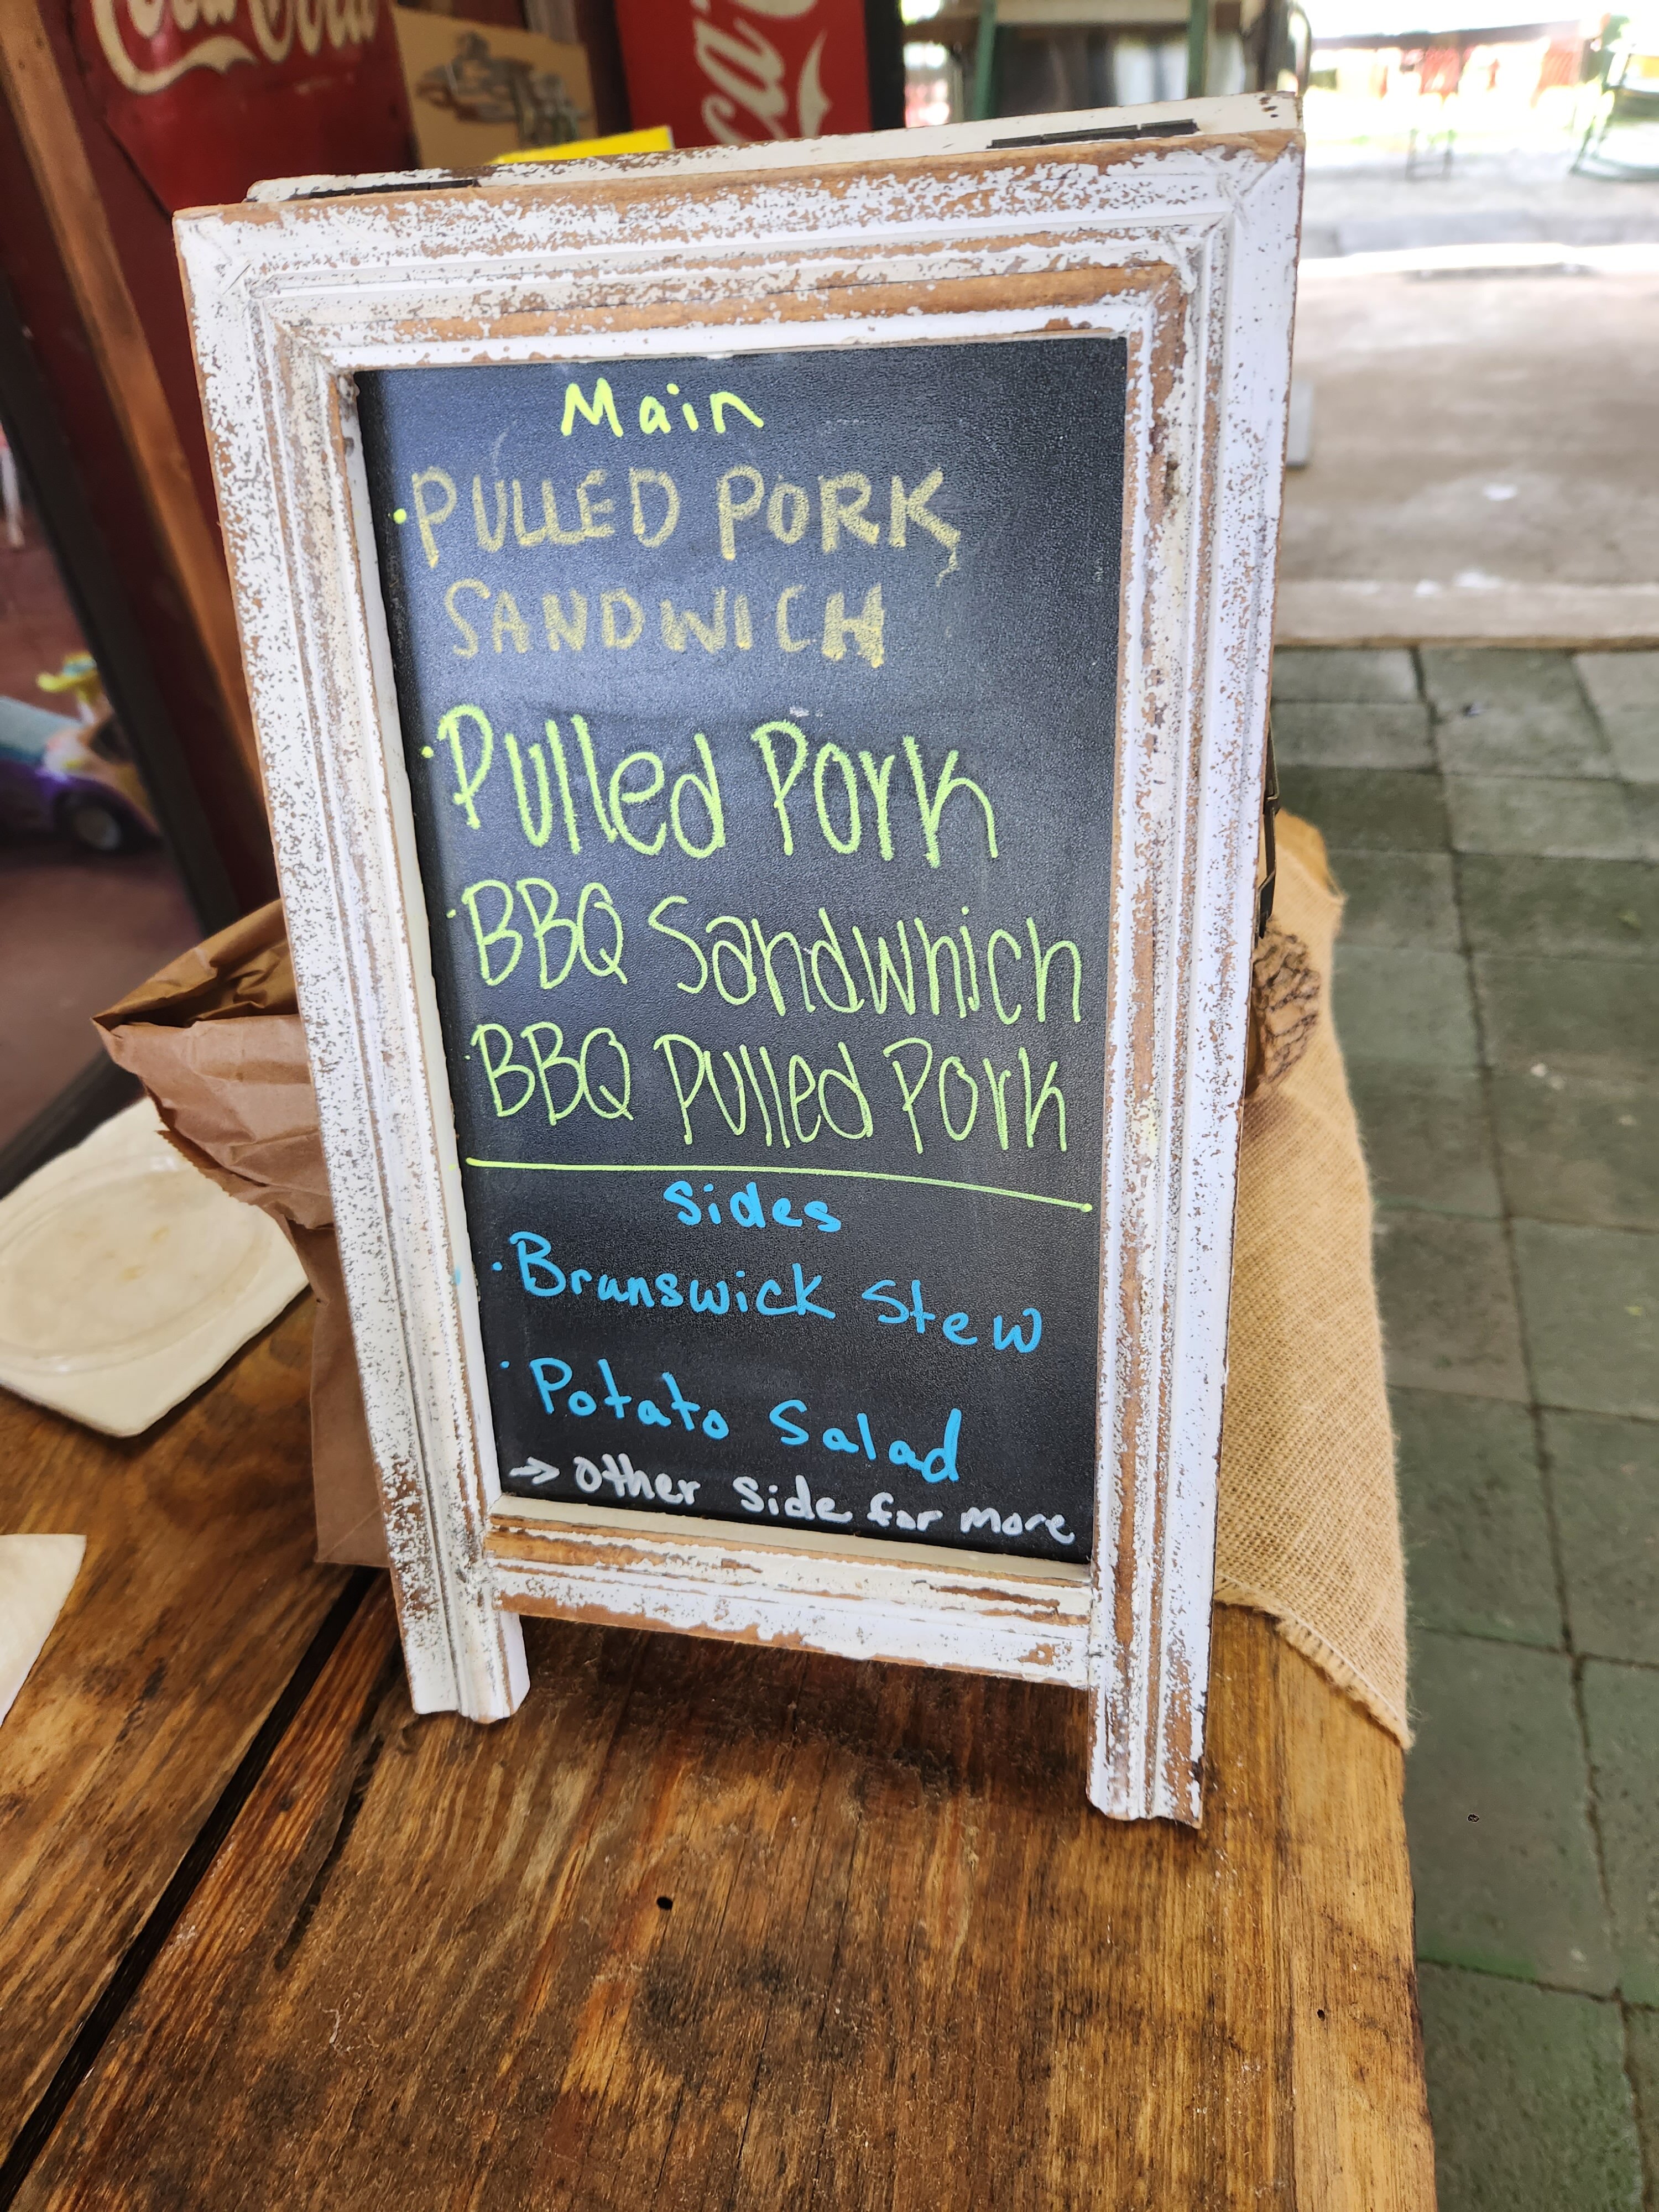 Coca Cola
ca
Main
• PULLED PORK
SANDWICH
• Pulled Pork
• BBQ Sandwhich
• BBQ Pulled Pork
Sides
• Brunswick Stew
• Potato Salad
→ other side for more